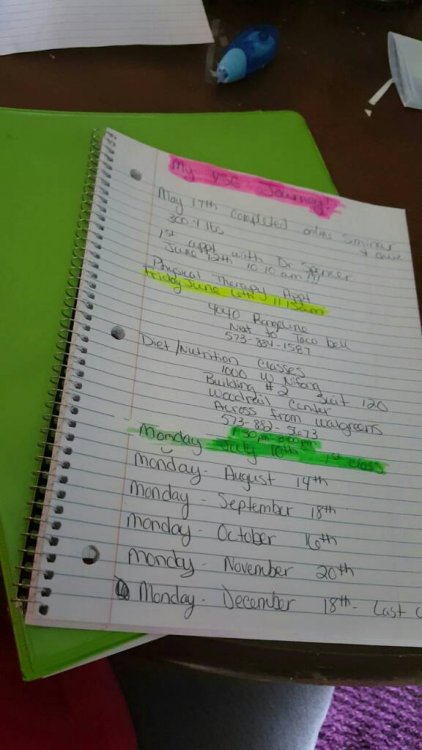 My VSG Journey!
May 17th completed online seminar
300.4 lbs
1st appt with Dr. Spencer
June 12th 10:10 am
Physical Therapy Appt
Friday June 11:15am
4040 Rangeline
Next to taco bell
573-384-1587
Diet/Nutrition Classes
1000 W Nifong
Building #2 Suit 120
Woodrail Center
Across from Walgreens
573-882-
Monday - July 10th 1st class
Monday - August 14th
Monday - September 18th
Monday - October 16th
Monday - November 20th
Monday - December 18th - Last